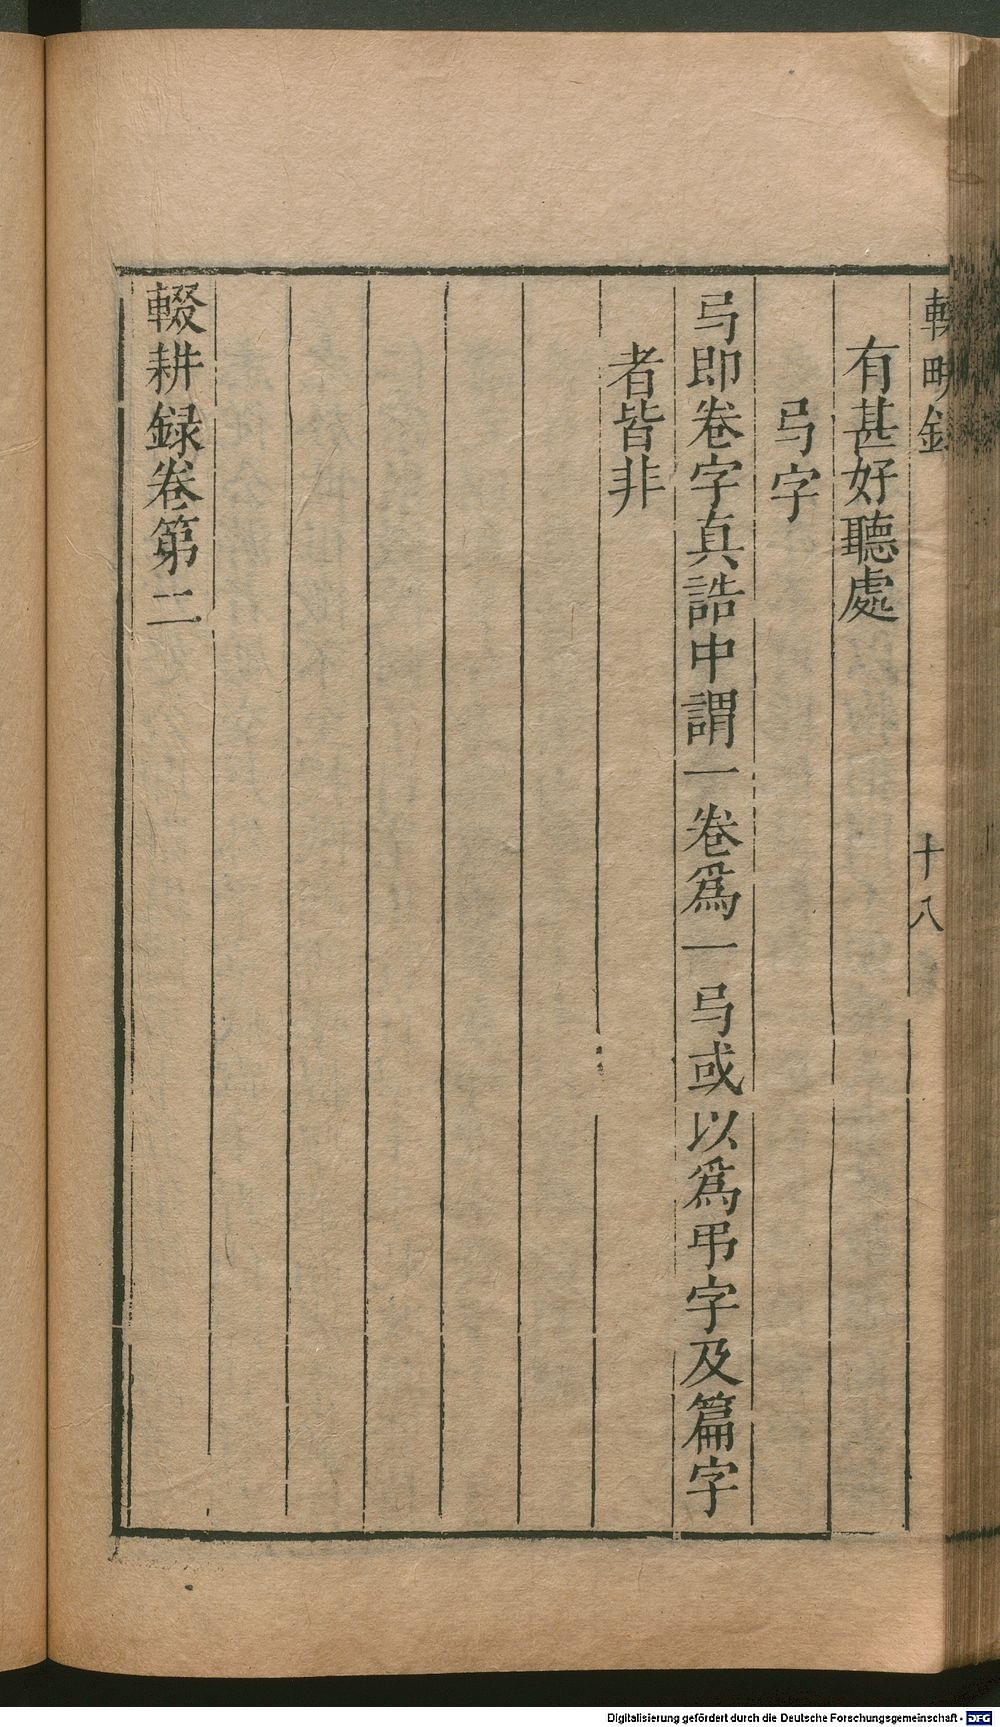 輟畊録
十八
有甚好聽處
弓字
弓即卷字真誥中謂一卷爲一弓或以爲弔字及篇字
者皆非
輟耕録卷第二
Digitalisierung gefördert durch die Deutsche Forschungsgemeinschaft - DFG